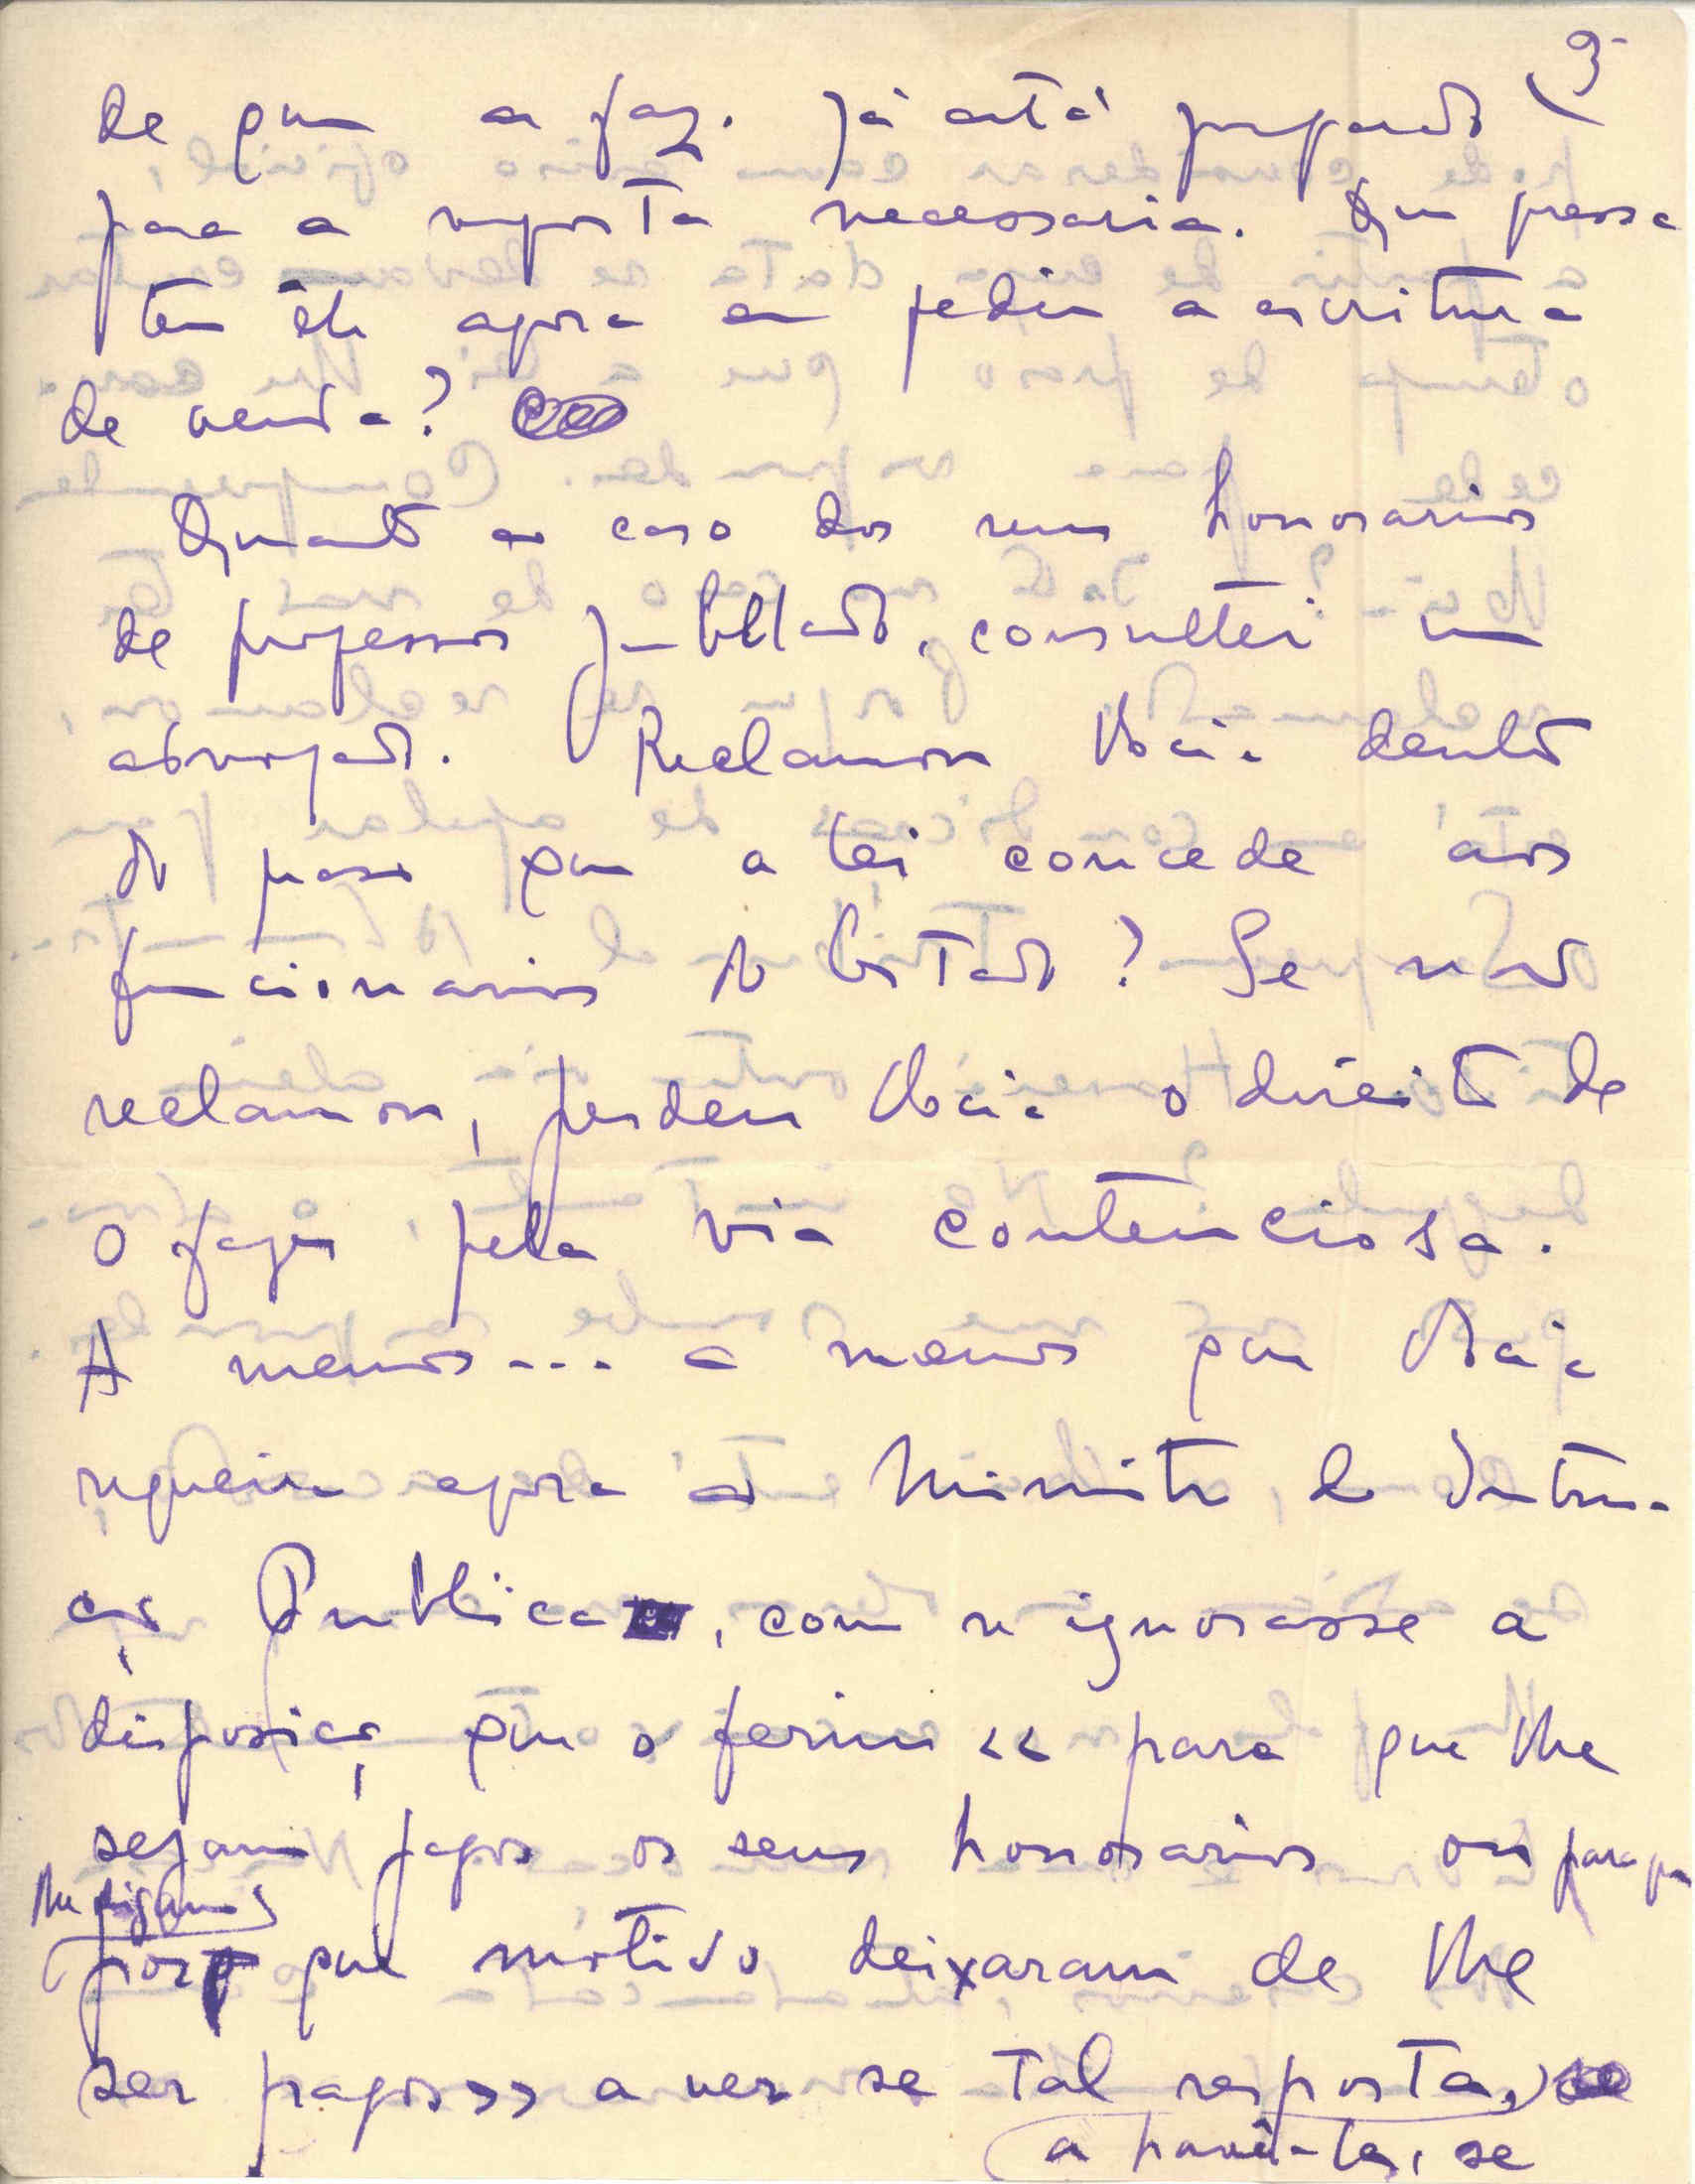 9
de quem a faz. Já está preparado
para a resposta necessaria. Que pressa
tem êle agora em pedir a escritura
de venda?
Quanto ao caso dos seus honorarios
de professor jubilado, consultei um
advogado. Reclamou Você dentro
do praso que a lei concede aos
funcionarios do Estado? Se não
reclamou, perdeu Você o direito de
o fazer pela via contenciosa.
A menos... a menos que Você
requeira agora ao Ministro de Instru-
ção Publica, como se ignorasse a
disposição que o feriu « para que lhe
sejam pagos os seus honorarios ou para que
lhe digam
por que motivo deixaram de lhe
ser pagos» a ver se tal resposta,
a havê-la, se